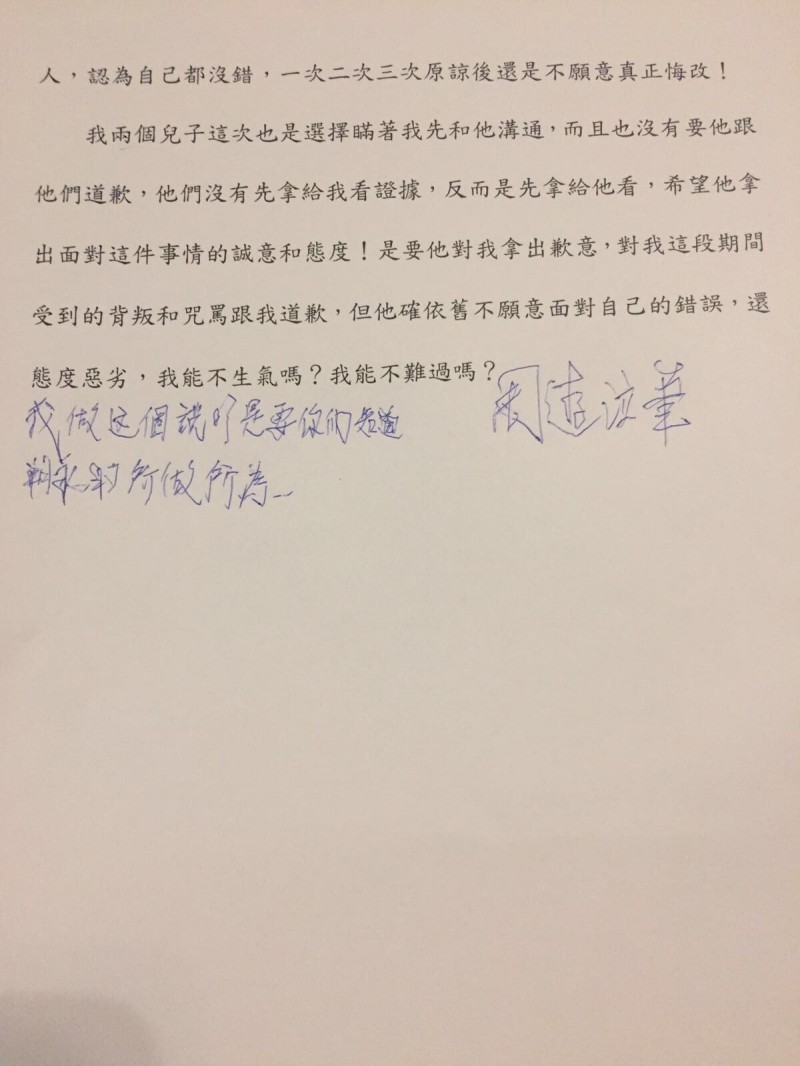 人，認為自己都沒錯，一次二次三次原諒後還是不願意真正悔改！
我兩個兒子這次也是選擇瞞著我先和他溝通，而且也沒有要他跟
他們道歉，他們沒有先拿給我看證據，反而是先拿給他看，希望他拿
出面對這件事情的誠意和態度！是要他對我拿出歉意，對我這段期間
受到的背叛和咒罵跟我道歉，但他確依舊不願意面對自己的錯誤，還
態度惡劣，我能不生氣嗎？我能不難過嗎？
我做这個說明是要你们知道
的所做所為